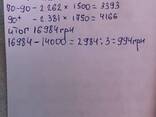 80-90 - 2.262 × 1500 = 3393
90+ - 2.381 × 1750 = 4166
итог 16984 грн
16984 - 14000 = 2984 : 3 = 994 грн